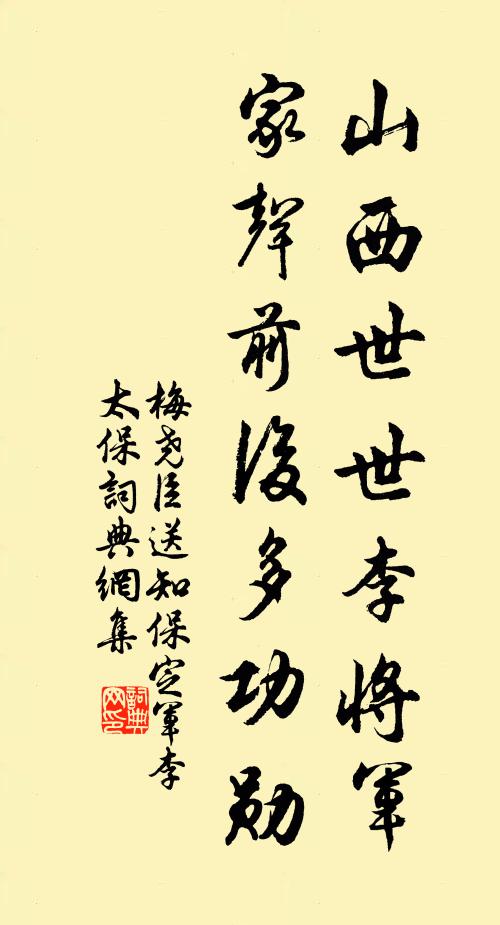 山西世世李將軍
家聲前後多功勛
梅尧臣送知保定軍李
太保詞典網集
詞典网印